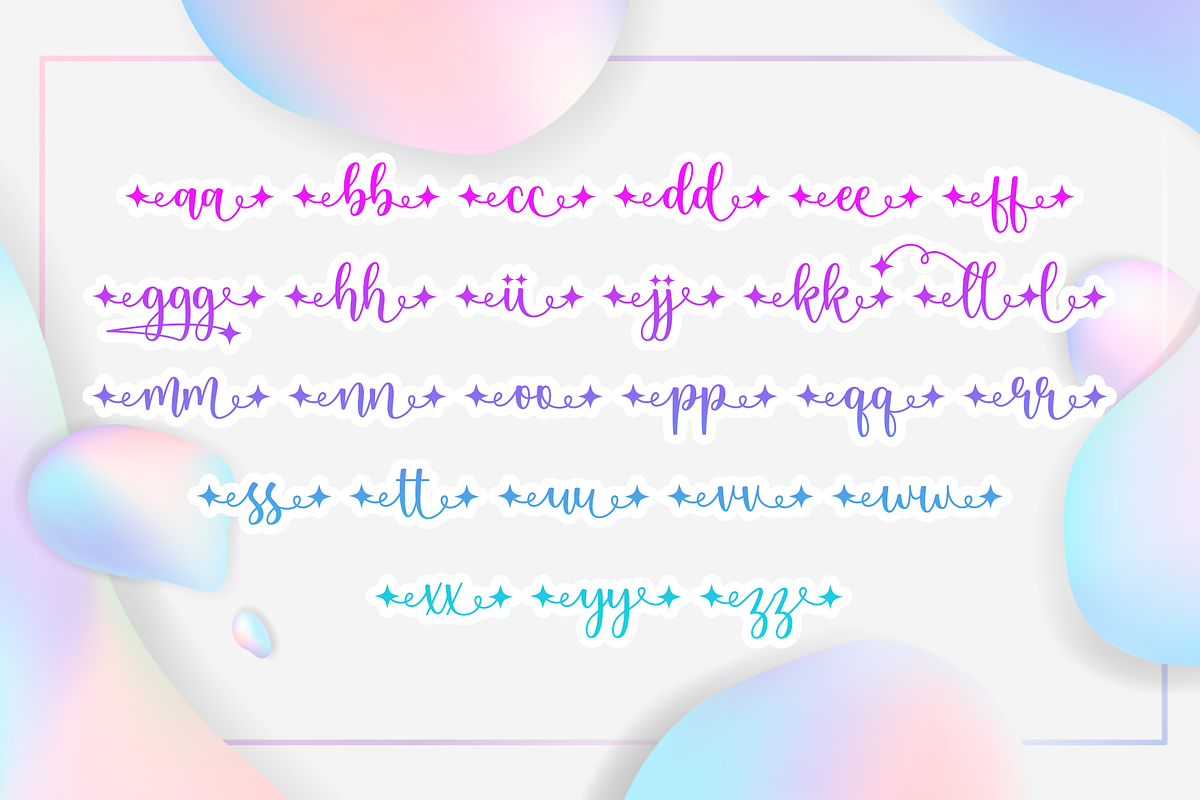 aa bb cc dd ee ff
ggg hh ii jj kk ll l
mm nn oo pp qq rr
ss tt uu vv ww
xx yy zz